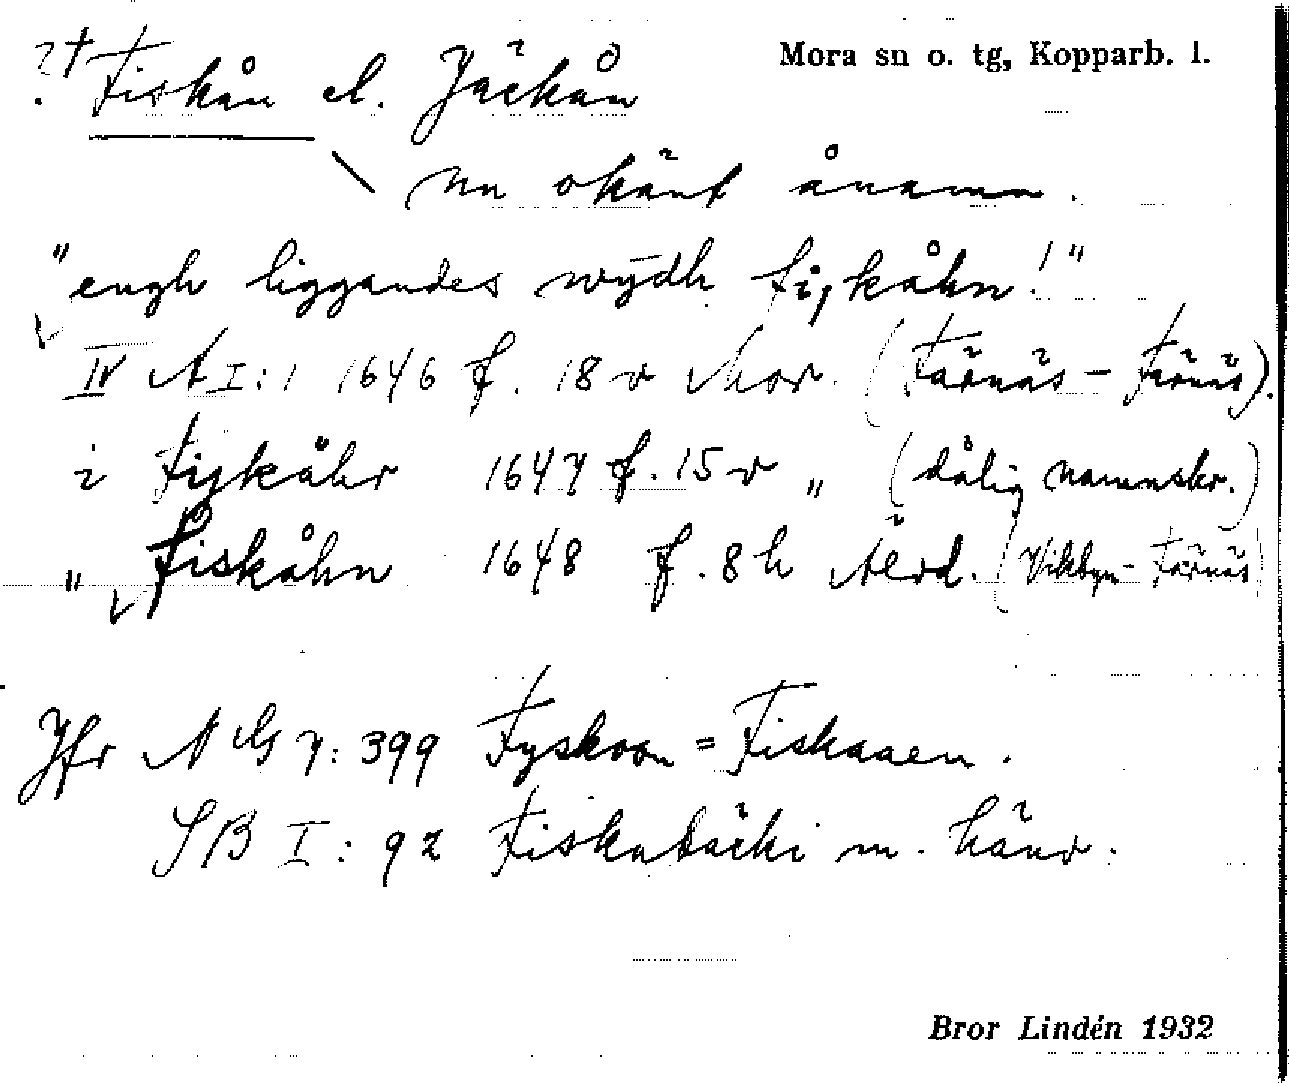 Mora sn o. tg, Kopparb. l.
?† Fiskån el. Jäckån
nu okänt ånamn.
"engh liggandes wÿdh fiskåhn!"
IV A I:1 1646 f. 18 v Mor. (Färnäs - Färnäs).
i Fijkåhr 1647 f. 15 v " (dålig namnskr.)
" Fiskåhn 1648 f. 8 h Ålrd. (Vikbyn - Färnäs)
Jfr NG 7: 399 Fyskoon = Fiskaaen.
SB I: 92 Fiskabäcki m. hänv.
Bror Lindén 1932